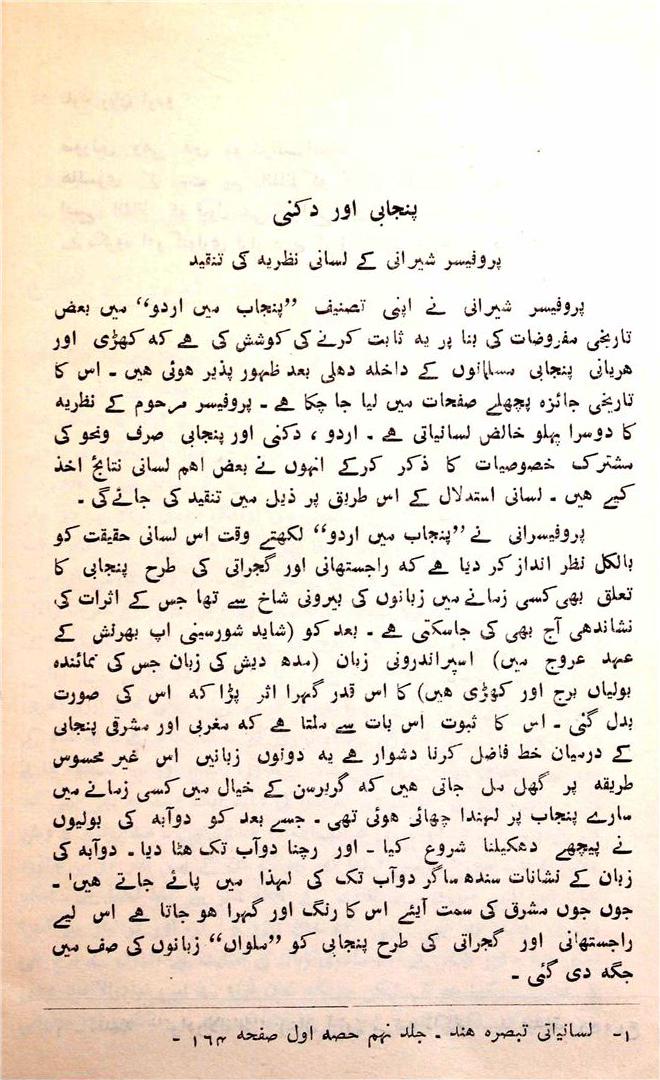 پنجابی اور دکنی
پروفیسر شیرانی کے لسانی نظریہ کی تنقید
پروفیسر شیرانی نے اپنی تصنیف ”پنجاب میں اردو“ میں بعض
تاریخی مفروضات کی بنا پر یہ ثابت کرنے کی کوشش کی ہے کہ کھڑی اور
ہریانی پنجابی مسلمانوں کے داخلہ دھلی بعد ظہور پذیر ہوئی ہیں ۔ اس کا
تاریخی جائزہ پچھلے صفحات میں لیا جا چکا ہے ۔ پروفیسر مرحوم کے نظریہ
کا دوسرا پہلو خالص لسانیاتی ہے ۔ اردو ، دکنی اور پنجابی صرف ونحو کی
مشترک خصوصیات کا ذکر کرکے انہوں نے بعض اہم لسانی نتائج اخذ
کیے ہیں ۔ لسانی استدلال کے اس طریق پر ذیل میں تنقید کی جائے گی ۔
پروفیسرانی نے ”پنجاب میں اردو“ لکھتے وقت اس لسانی حقیقت کو
بالکل نظر انداز کر دیا ہے کہ راجستھانی اور گجراتی کی طرح پنجابی کا
تعلق بھی کسی زمانے میں زبانوں کی بیرونی شاخ سے تھا جس کے اثرات کی
نشاندھی آج بھی کی جاسکتی ہے ۔ بعد کو (شاید شورسینی اپ بھرنش کے
عہد عروج میں) اسپراندرونی زبان (مدھ دیش کی زبان جس کی نمائندہ
بولیاں برج اور کھڑی ھیں) کا اس قدر گہرا اثر پڑا کہ اس کی صورت
بدل گئی ۔ اس کا ثبوت اس بات سے ملتا ہے کہ مغربی اور مشرقی پنجابی
کے درمیان خط فاضل کرنا دشوار ہے یہ دونوں زبانیں اس غیر محسوس
طریقہ پر گھل مل جاتی ھیں کہ گریرسن کے خیال میں کسی زمانے میں
سارے پنجاب پر لہندا چھائی ہوئی تھی ۔ جسے بعد کو دوآبہ کی بولیوں
نے پیچھے دھکیلنا شروع کیا ۔ اور رچنا دوآب تک ھٹا دیا ۔ دوآبہ کی
زبان کے نشانات سندھ ساگر دوآب تک کی لہذا میں پائے جاتے ھیں۱ ۔
جوں جوں مشرق کی سمت آیئے اس کا رنگ اور گہرا ھو جاتا ہے اس لیے
راجستھانی اور گجراتی کی طرح پنجابی کو ”ملواں“ زبانوں کی صف میں
جگہ دی گئی ۔
۱- لسانیاتی تبصرہ ھند ۔ جلد نہم حصہ اول صفحہ ۱۶۴ -